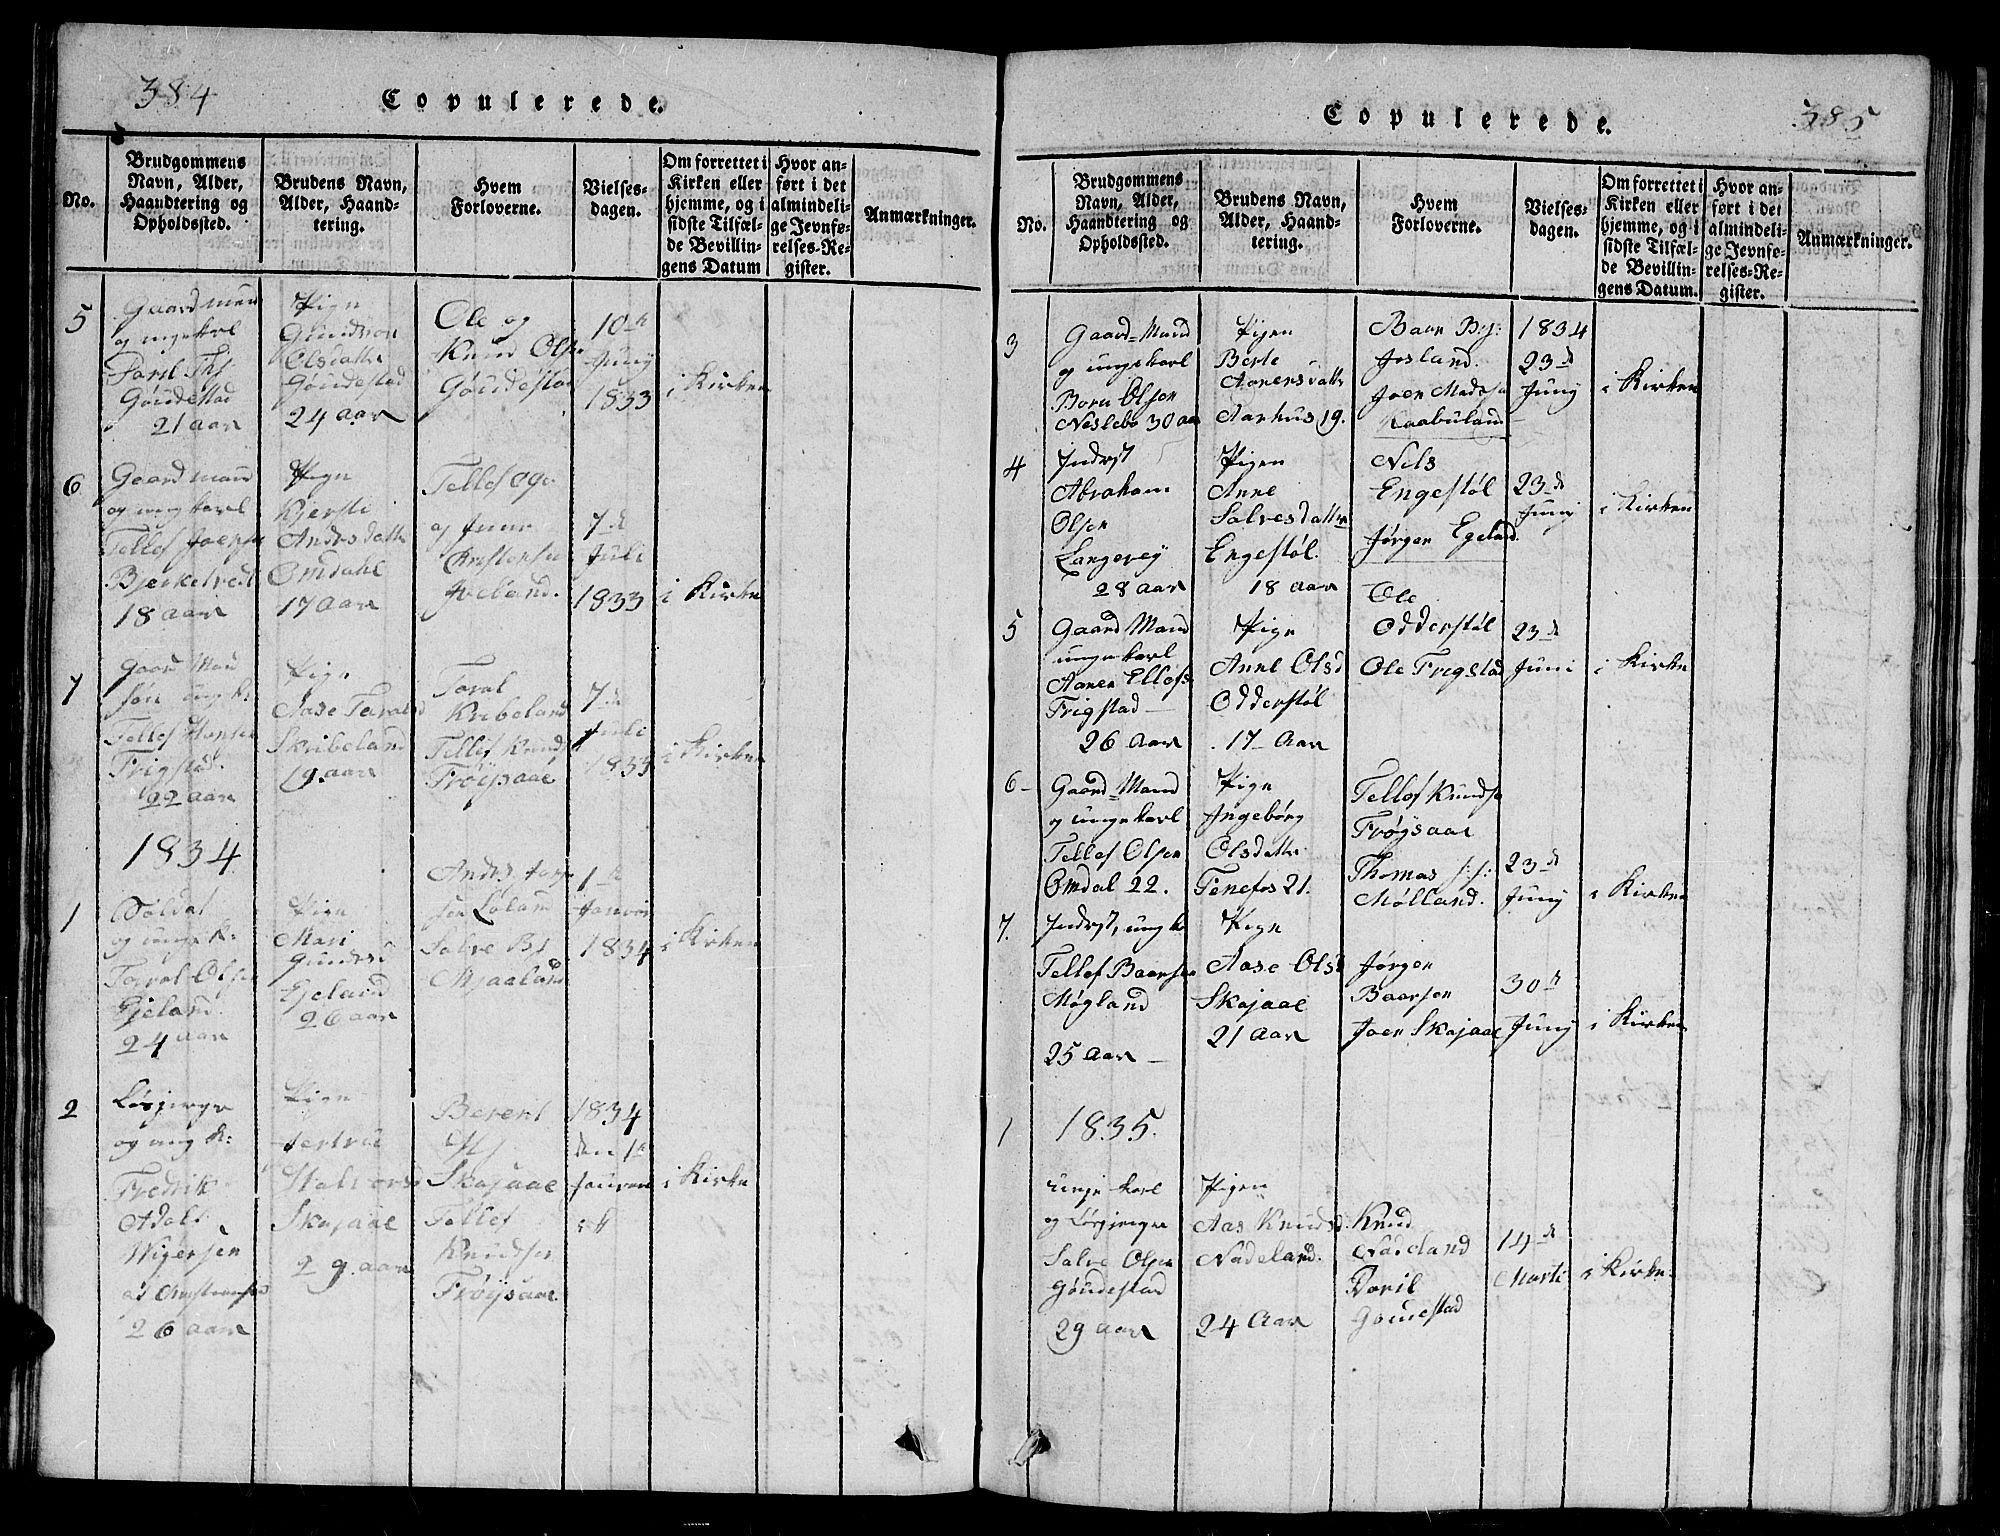 384
Copulerede.
No.
Brudgommens Navn, Alder, Haandtering og Opholdssted.
Brudens Navn, Alder, Haandtering.
Hvem Forloverne.
Vielsesdagen.
Om forrettet i Kirken eller hjemme, og i sidste Tilfælde Bevillingens Datum
Hvor anført i det almindelige Jevnførelses-Register.
Anmærkninger.
5
Gaardmand
og ungekarl
Goudestad
21 aar
Pige
Olsdattr
Goudestad
24 aar
Ole og
Knud Olse
Goudestad
10de
Juny
1833
i Kirken
6
Gaardmand
og ungkarl
Tellef Joense
Bjerketvedt
18 aar
Pige
Kjersti
Andrsdattr
Omdahl
17 aar
Tellef
og
Christense
7de
Juli
1833
i Kirke
7
Gaard Man
søn ung k:
Tellef Hansen
Frigstad.
22 aar
Pige
Aase Taralsd
Skribeland
19. aar
Taral
Kribeland
Tellef Knuds
Frøysaae
7de
Juli
1833
i Kirken
1834
1
Soldat
og unge k:
Taral Olsen
Ejeland.
24 aar
Pige
Mari
Ejeland
26 aar
sen
Salve
Mjaaland
1te
1834
i Kirken
2
og ung k:
Fredrik
Adolf
Wigersen
26 aar
Pige
Halvorsd
Skajaae
29. aar
Berent
Skajaae
Tellef
Knudsen
Frøysaae.
1834
den 1te
i Kirke
385
Copulerede.
No.
Brudgommens Navn, Alder, Haandtering og Opholdssted.
Brudens Navn, Alder, Haandtering.
Hvem Forloverne.
Vielsesdagen.
Om forrettet i Kirken eller hjemme, og i sidste Tilfælde Bevillingens Datum.
Hvor anført i det almindelige Jevnførelses-Register.
Anmærkninger.
3
Gaard=Mand
og unge karl
Olsen
Neslebø 30 aar
Pigen
Berte
Aanensdattr
Aarhus 19.
Baar
Josland.
Joen Madsse
1834
23de
Juny
i Kirken
4
Inderst
Abraham
Olsen
Langevej
28 aar
Pigen
Anne
Salvesdattr
Engestøl.
18 aar
Nels
Engestøl
Jørgen Egeland.
23de
Juny
i Kirken
5
Gaard Mand
unge karl
Aanen Ellefs
Frigstad
26 aar
Pige
Anne Olsd
Odderstøl
17 Aar
Ole
Odderstøl
Ole Frigstad
23de
Juni
i Kirke
6
Gaard=Mand
og unge karl
Tellef Olsen
Omdal 22.
Pige
Ingebørg
Olsdattr
Tenefos 21.
Tellef Knudse
Frøysaae
Thomas
Mølland.
23de
Juny
i Kirken
7.
Inderst, ung k
Tellef Baarsen
Møgland
25 aar
Pige
Aase Olsd
Skajaae
21 aar
Jørgen
Baarsen
Joen Skajaae
30te
Juny
i Kirken
1
1835.
unge karl
Salve Olsen
Goudestad
29 aar
Pigen
Aas Knudsd
Nadeland.
24 Aar
Knud
Nadeland
Goudestad
14de
Marti
i Kirke.